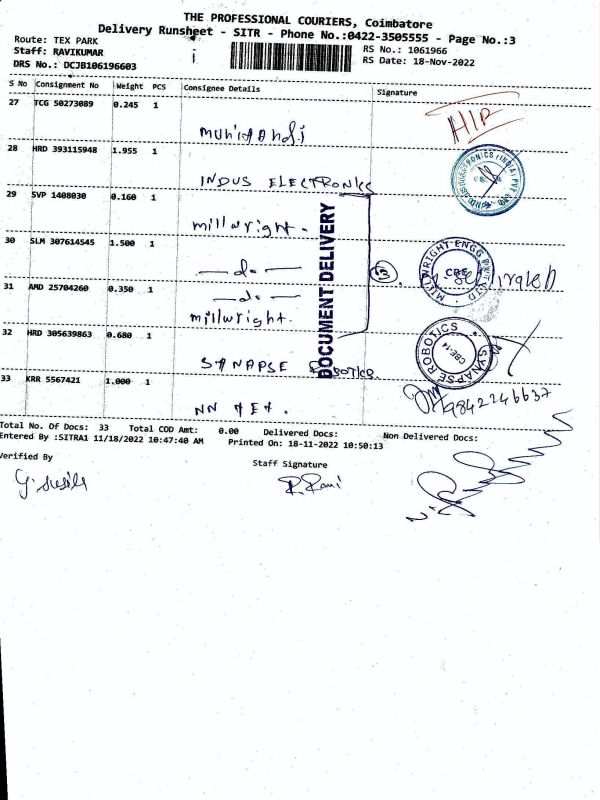 THE PROFESSIONAL COURIERS, Coimbatore
Delivery Runsheet - SITR - Phone No.:0422-3505555 - Page No.:3
Route: TEX PARK
RS No.: 1061966
Staff: RAVIKUMAR
RS Date: 18-Nov-2022
DRS No.: DCJB106196603
S No Consignment No Weight PCS Consignee Details Signature
27 TCG 50273089 0.245 1
28 HRD 393115948 1.955 1
INDUS ELECTRONICS
29 SVP 1408030 0.160 1
millwright.
30 SLM 307614545 1.500 1
— do —
31 AMD 25704260 0.350 1
— do —
millwright.
32 HRD 305639863 0.680 1
SYNAPSE ROBOTICS
33 KRR 5567421 1.000 1
NN TEX.
DOCUMENT DELIVERY
MILLWRIGHT ENGG
CBE
SYNAPSE ROBOTICS
CBE-14
9842246637
Total No. Of Docs: 33 Total COD Amt: 0.00 Delivered Docs: Non Delivered Docs:
Entered By :SITRA1 11/18/2022 10:47:40 AM Printed On: 18-11-2022 10:50:13
Verified By
Staff Signature